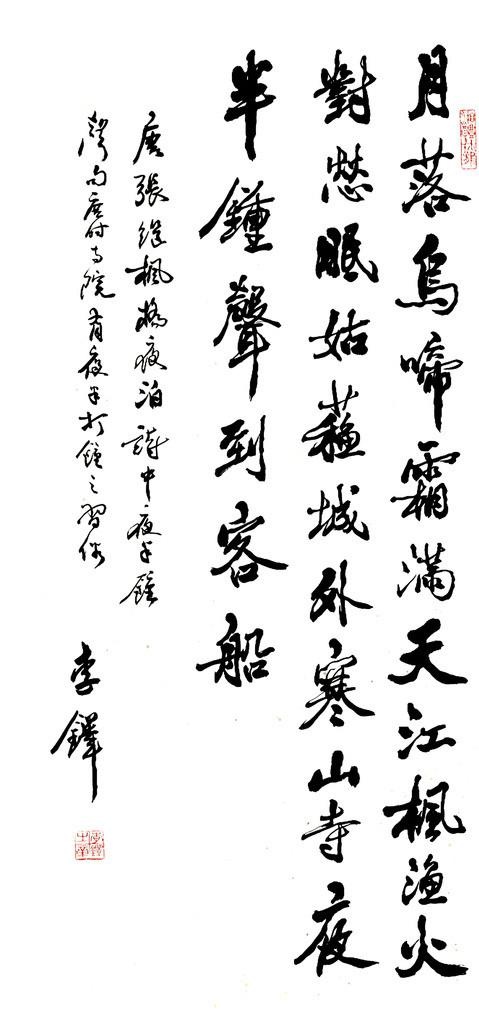 月落烏啼霜滿天江楓漁火
對愁眠姑蘇城外寒山寺夜
半鐘聲到客船
唐張繼楓橋夜泊詩中夜半鐘
聲句唐時寺院有夜半打鐘之習俗
李鐸